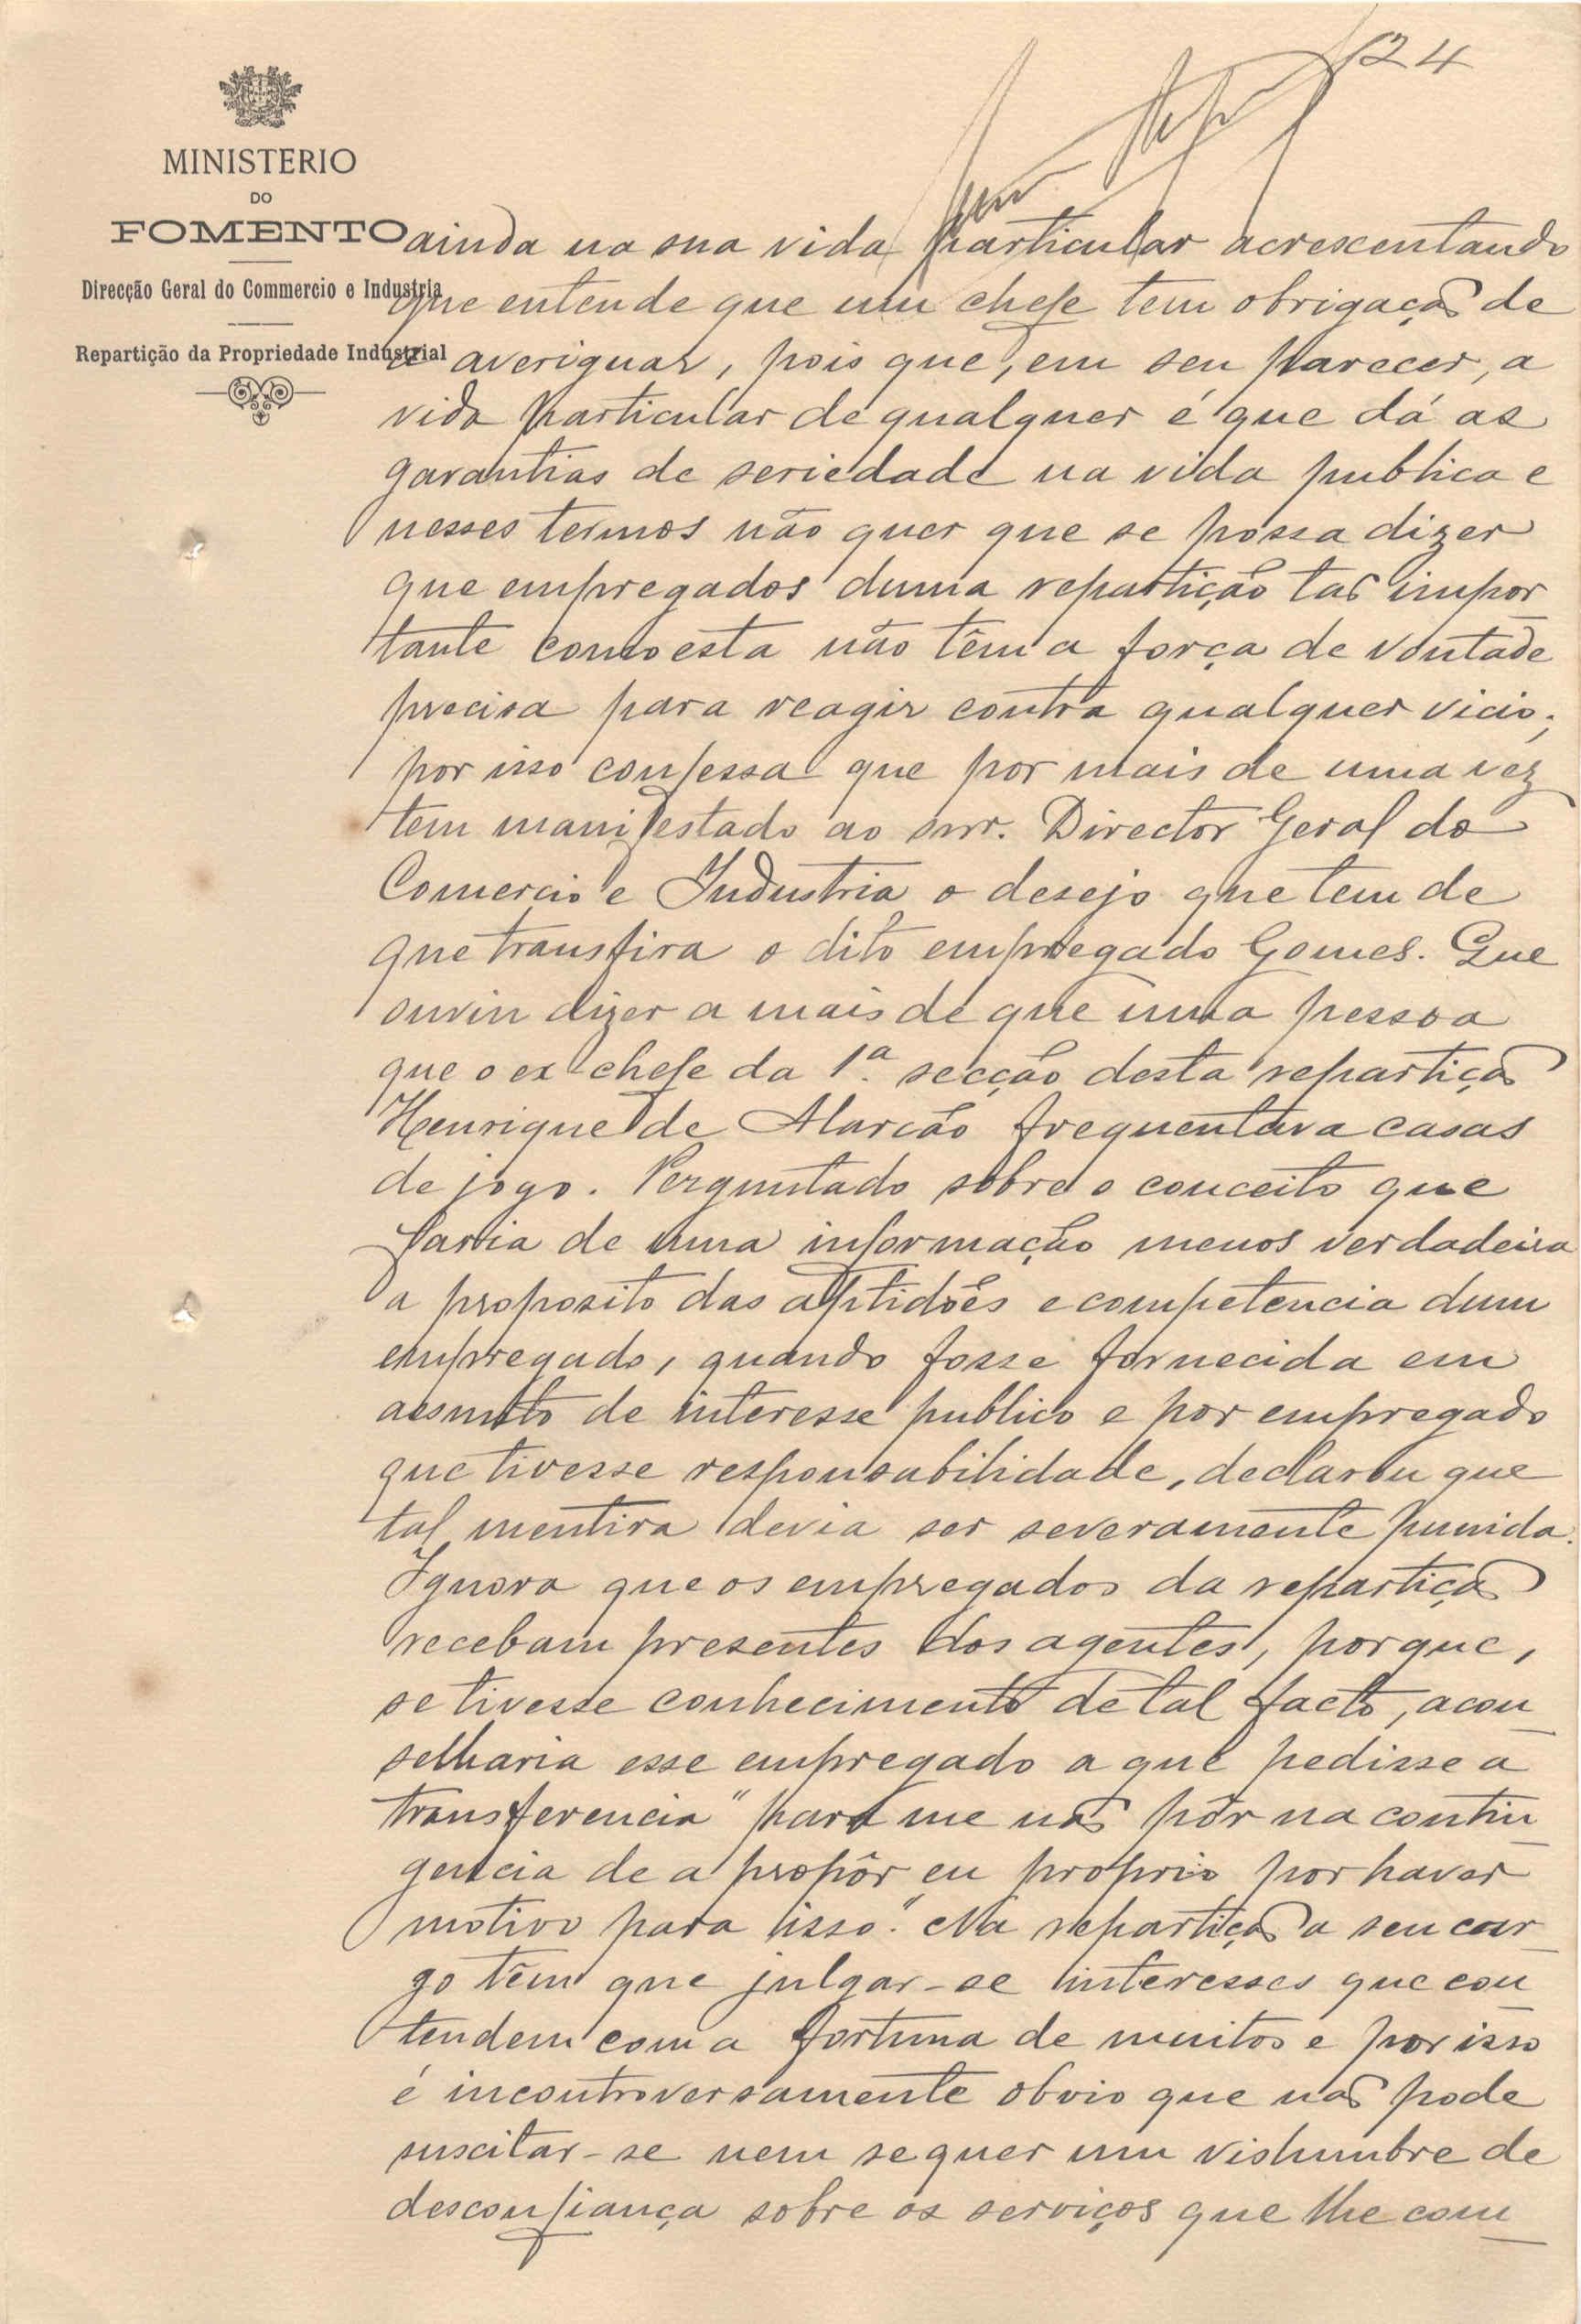 24
MINISTERIO
DO
FOMENTO
Direcção Geral do Commercio e Industria
Repartição da Propriedade Industrial
ainda na sua vida particular acrescentando
que entende que um chefe tem obrigação de
a averiguar, pois que, em seu parecer, a
vida particular de qualquer é que dá as
garantias de seriedade na vida publica e
nesses termos não quer que se possa dizer
que empregados duma repartição tão impor
tante como esta não têm a força de vontade
precisa para reagir contra qualquer vicio;
por isso confessa que por mais de uma vez
tem manifestado ao snr. Director Geral do
Comercio e Industria o desejo que tem de
que transfira o dito empregado Gomes. Que
ouviu dizer a mais de que uma pessoa
que o ex chefe da 1.ª secção desta repartição
Henrique de Alarcão frequentava casas
de jogo. Perguntado sobre o conceito que
faria de uma informação menos verdadeira
a proposito das aptidões e competencia dum
empregado, quando fosse fornecida em
assunto de interesse publico e por empregado
que tivesse responsabilidade, declarou que
tal mentira devia ser severamente punida.
Ignora que os empregados da repartição
recebam presentes dos agentes, porque,
se tivesse conhecimento de tal facto, acon
selharia esse empregado a que pedisse a
transferencia "para me não pôr na contin
gencia de a propôr eu proprio por haver
motivo para isso". Na repartição a seu car
go têm que julgar-se interesses que con
tendem com a fortuna de muitos e por isso
é incontroversamente obvio que não pode
suscitar-se nem sequer um vislumbre de
desconfiança sobre os serviços que lhe com